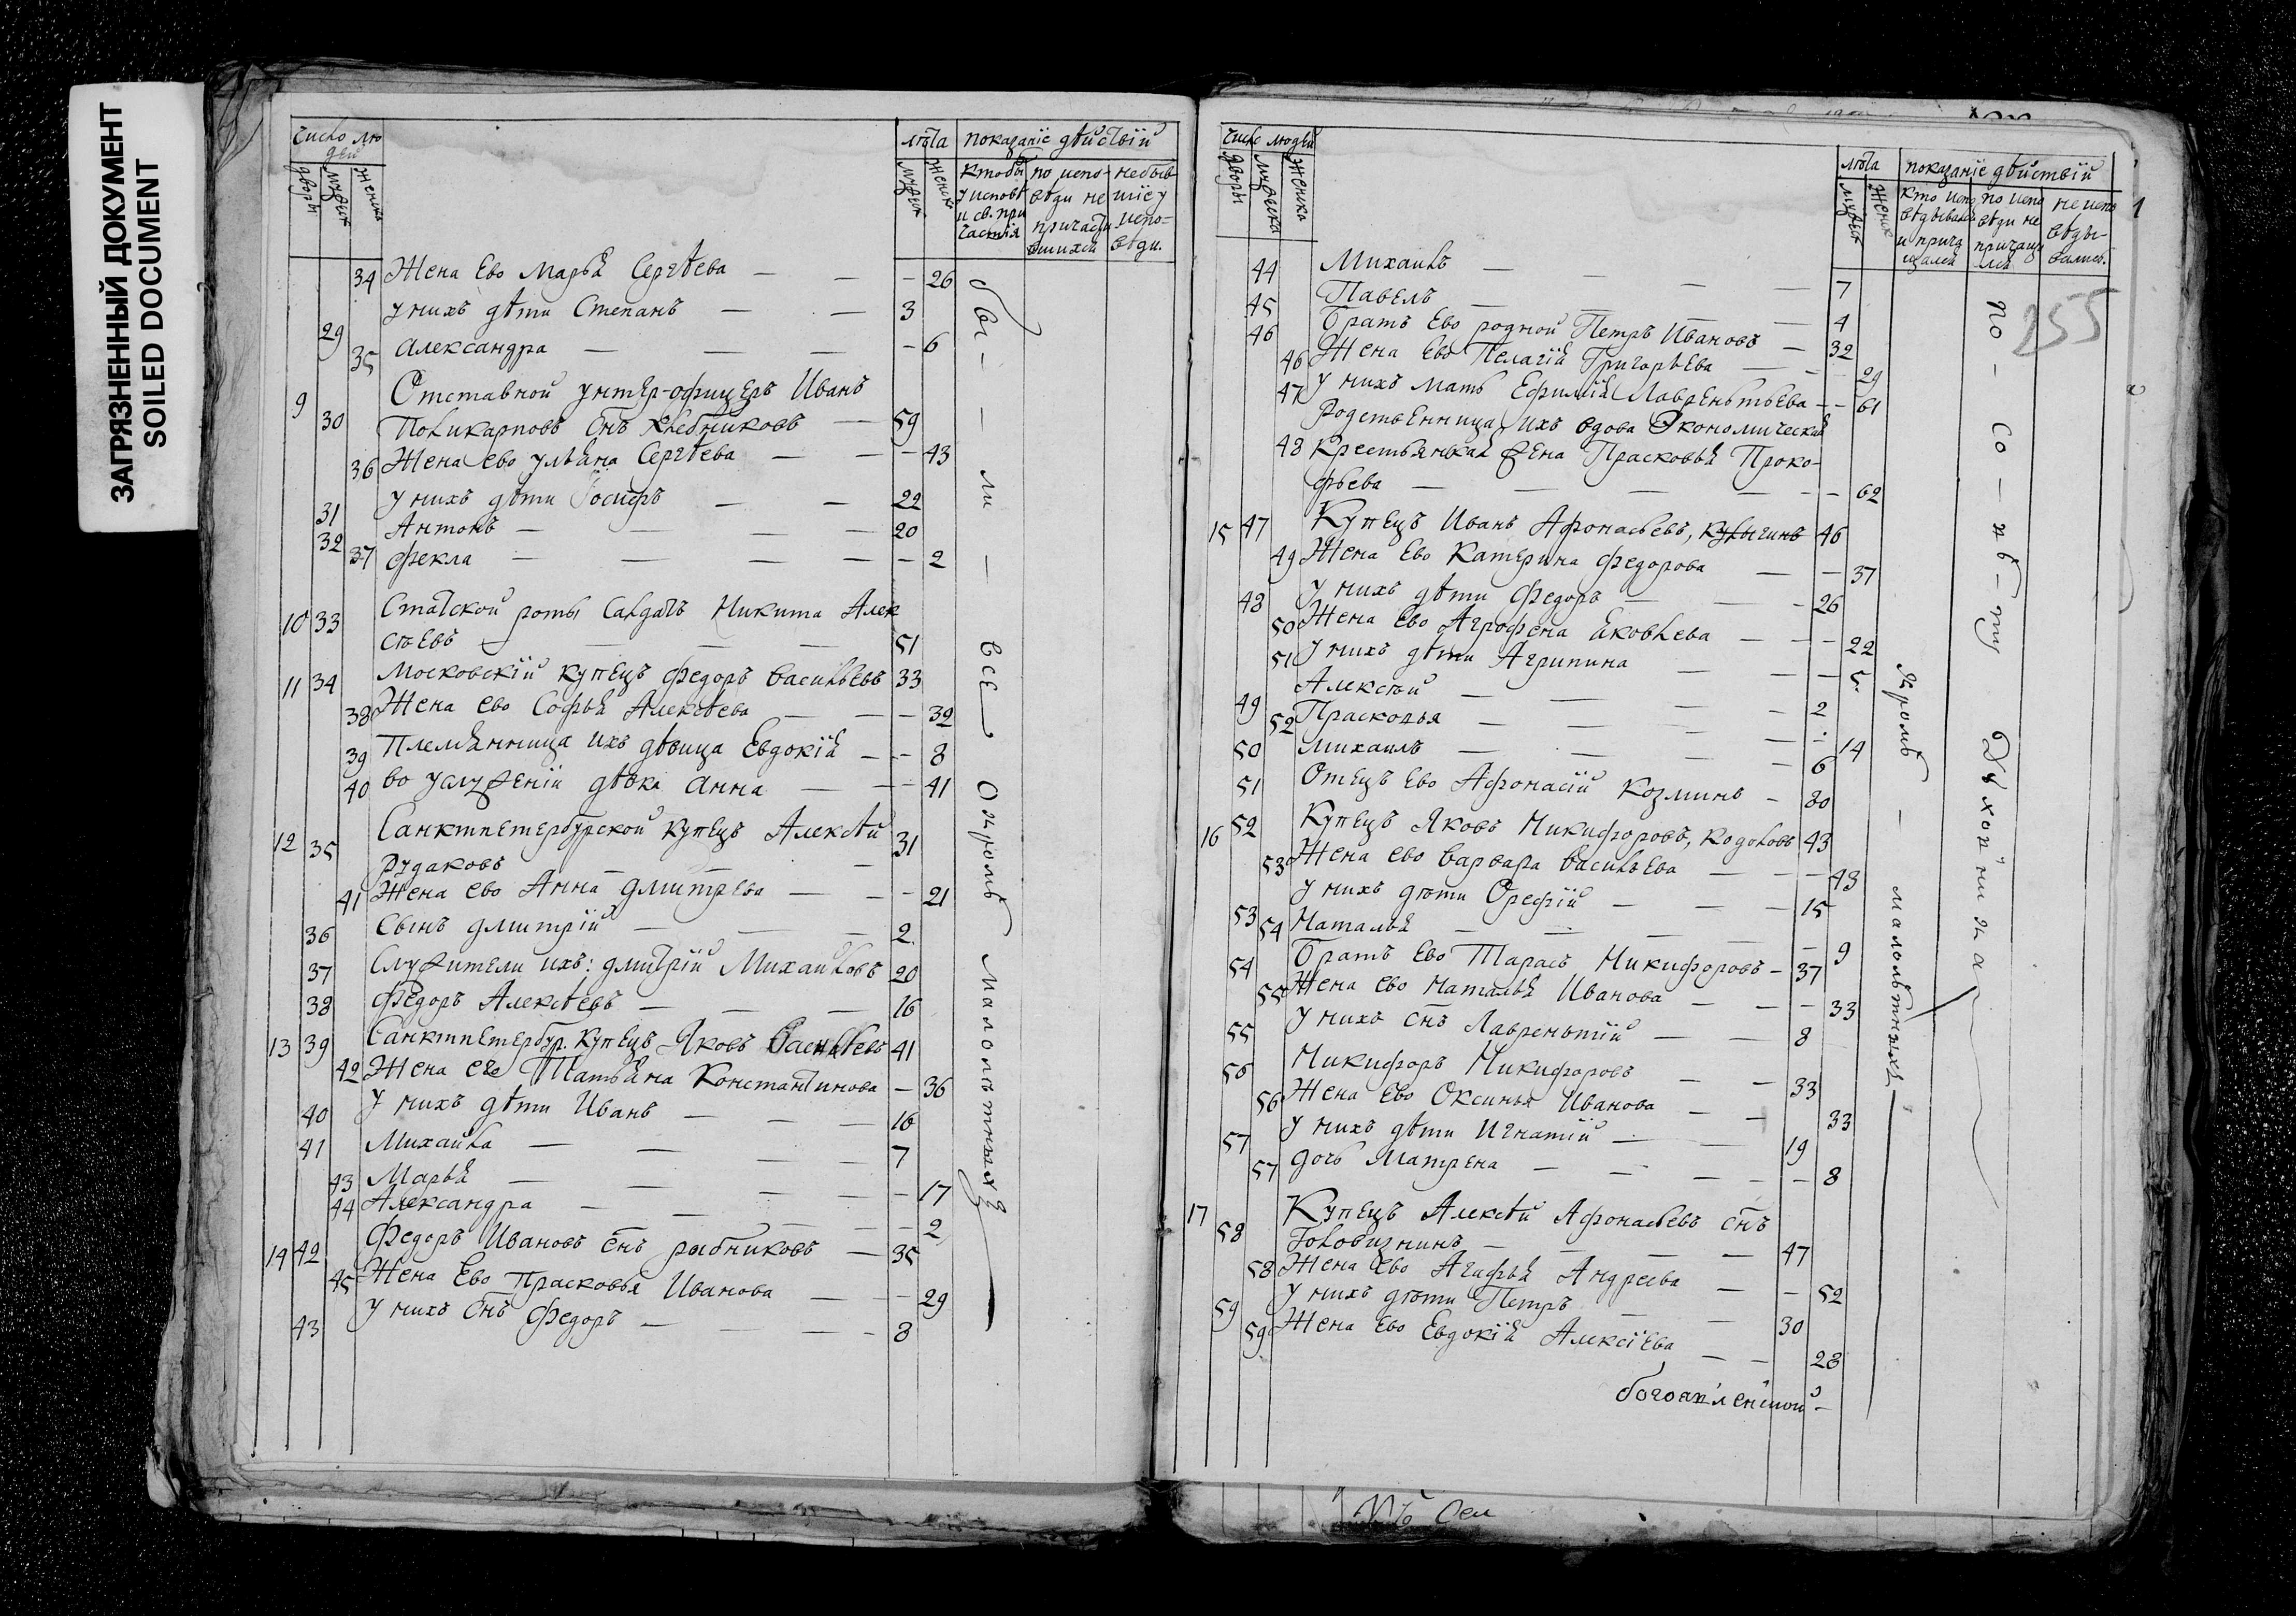 ЗАГРЯЗНЕННЫЙ ДОКУМЕНТ
SOILED DOCUMENT
число лю
дей
дворы
мужеск
женска
лѣта
мужеск
женска
показанїе дѣйствїй
кто бы
у исповѣ
и св. при
частїя
по испо-
вѣди не
причасти
вшихся
небыв
шїе у
испо-
вѣди.
34 Жена Ево Марья Сергѣева — — — 26
29 у нихъ дѣти Степанъ — — 3
35 Александра — — — — 6
9 Отставной унтеръ-офицеръ Иванъ
30 Поликарповъ снъ Хлебниковъ — 59
36 Жена ево ульяна Сергѣева — — — 43
31 у нихъ дѣти Іосифъ — — 22
32 Антонъ — — — — 20
37 Фекла — — — — — 2
10 33 Статской роты Салдатъ Никита Алек
сѣевъ — — — 51
11 34 Московскїй купецъ Федоръ Васильевъ 33
38 Жена ево Софья Алексѣева — — — 32
39 Племянница ихъ дѣвица Евдокїя — — 8
40 во услуженїи дѣвка Анна — — — 41
12 35 Санктпетербурской купецъ Алексѣй 31
Рудаковъ — — —
41 Жена ево Анна Дмитрева — — — 21
36 Сынъ Дмитрїй — — — 2
37 Служители ихъ: Дмитрїй Михайловъ 20
38 Федоръ Алексѣевъ — — — 16
13 39 Санктпетербур. купецъ Яковъ Васильевъ 41
42 Жена его Татьяна Константинова — 36
40 у нихъ дѣти Иванъ — — — 16
41 Михайла — — — — 7
43 Марья — — — — — 17
44 Александра — — — — — 2
14 42 Федоръ Ивановъ снъ рыбниковъ — 35
45 Жена Ево Прасковья Иванова — — 29
43 у нихъ снъ Федоръ — — — — 8
бы — — ли — всѣ окромѣ малолѣтныхъ
число людей
дворы
мужеска
женска
лѣта
мужеск
женск
показанїе дѣйствїй
кто испо
вѣдывалс
и прича
щался
по испо
вѣди не
причащ
лся
не испо
вѣды-
вались.
1
255
44 Михаилъ — — — — 7
45 Павелъ — — — — 4
46 Братъ Ево родной Петръ Ивановъ — 32
46 Жена Ево Пелагїя Григорьева — — 29
47 у нихъ мать Ефимїя Лаврентьева — — 61
Родственница ихъ вдова Экономическая
48 Крестьянская жена Прасковья Проко-
фьева — — — — — — 62
15 47 Купецъ Иванъ Афонасьевъ, Кулыгинъ 46
49 Жена Ево Катерина Федорова — — 37
48 у нихъ дѣти Федоръ — — — 26
50 Жена Ево Агрофена Яковлева — — — 22
51 у нихъ дѣти Агрипина — — — 5
49 Алексѣй — — — — 2
52 Прасковья — — — — — 14
50 Михаилъ — — — — 6
51 Отецъ Ево Афонасїй Козминъ — 80
16 52 Купецъ Яковъ Никифоровъ, 43
53 Жена ево Варвара Васильева — — — 43
53 у нихъ дѣти Орефїй — — — 15
54 Наталья — — — — — 9
54 Братъ Ево Тарасъ Никифоровъ — 37
55 Жена Ево Наталья Иванова — — — 33
55 у нихъ снъ Лаврентїй — — 8
56 Никифоръ Никифоровъ — — 33
56 Жена Ево Оксинья Иванова — — 33
57 у нихъ дѣти Игнатїй — — 19
57 дочь Матрена — — — — 8
17 Купецъ Алексѣй Афонасьевъ снъ
58 Головизнинъ — — — — 47
58 Жена Ево Агафья Андреева — — 52
59 у нихъ дѣти Петръ — — 30
59 Жена Ево Евдокїя Алексїева — — 28
кромѣ — малолѣтныхъ
по — со —